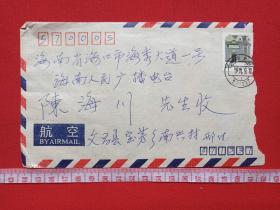 570005
海南省海口市海秀大道一号
海南人民广播电台
陳海川 先生收
航空
BY AIR MAIL
文昌县宝芳乡南兴村邮